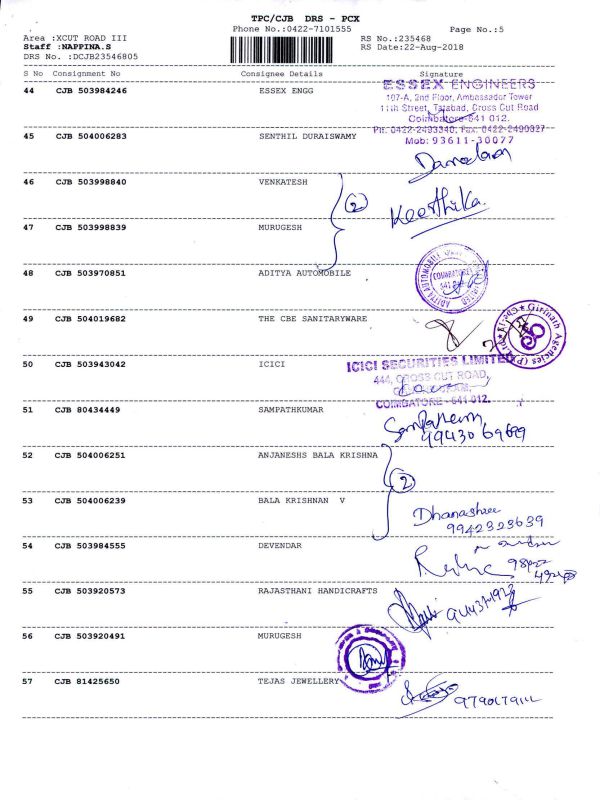 TPC/CJB DRS - PCX
Phone No.:0422-7101555 Page No.:5
Area :XCUT ROAD III RS No.:235468
Staff :NAPPINA.S RS Date:22-Aug-2018
DRS No. :DCJB23546805
S No Consignment No Consignee Details Signature
44 CJB 503984246 ESSEX ENGG
ESSEX ENGINEERS
107-A, 2nd Floor, Ambassador Tower
11th Street, Tatabad, Cross Cut Road
Coimbatore-641 012.
Ph: 0422-2493340, Fax: 0422-2490827
Mob: 93611-30077
45 CJB 504006283 SENTHIL DURAISWAMY
46 CJB 503998840 VENKATESH
2 Keerthika
47 CJB 503998839 MURUGESH
48 CJB 503970851 ADITYA AUTOMOBILE
49 CJB 504019682 THE CBE SANITARYWARE
Girinath Agencies (P) Ltd
50 CJB 503943042 ICICI
ICICI SECURITIES LIMITED
444, CROSS CUT ROAD,
COIMBATORE - 641 012.
51 CJB 80434449 SAMPATHKUMAR
52 CJB 504006251 ANJANESHS BALA KRISHNA
2
53 CJB 504006239 BALA KRISHNAN V
Dhanashree
9942323639
54 CJB 503984555 DEVENDAR
55 CJB 503920573 RAJASTHANI HANDICRAFTS
56 CJB 503920491 MURUGESH
57 CJB 81425650 TEJAS JEWELLERY